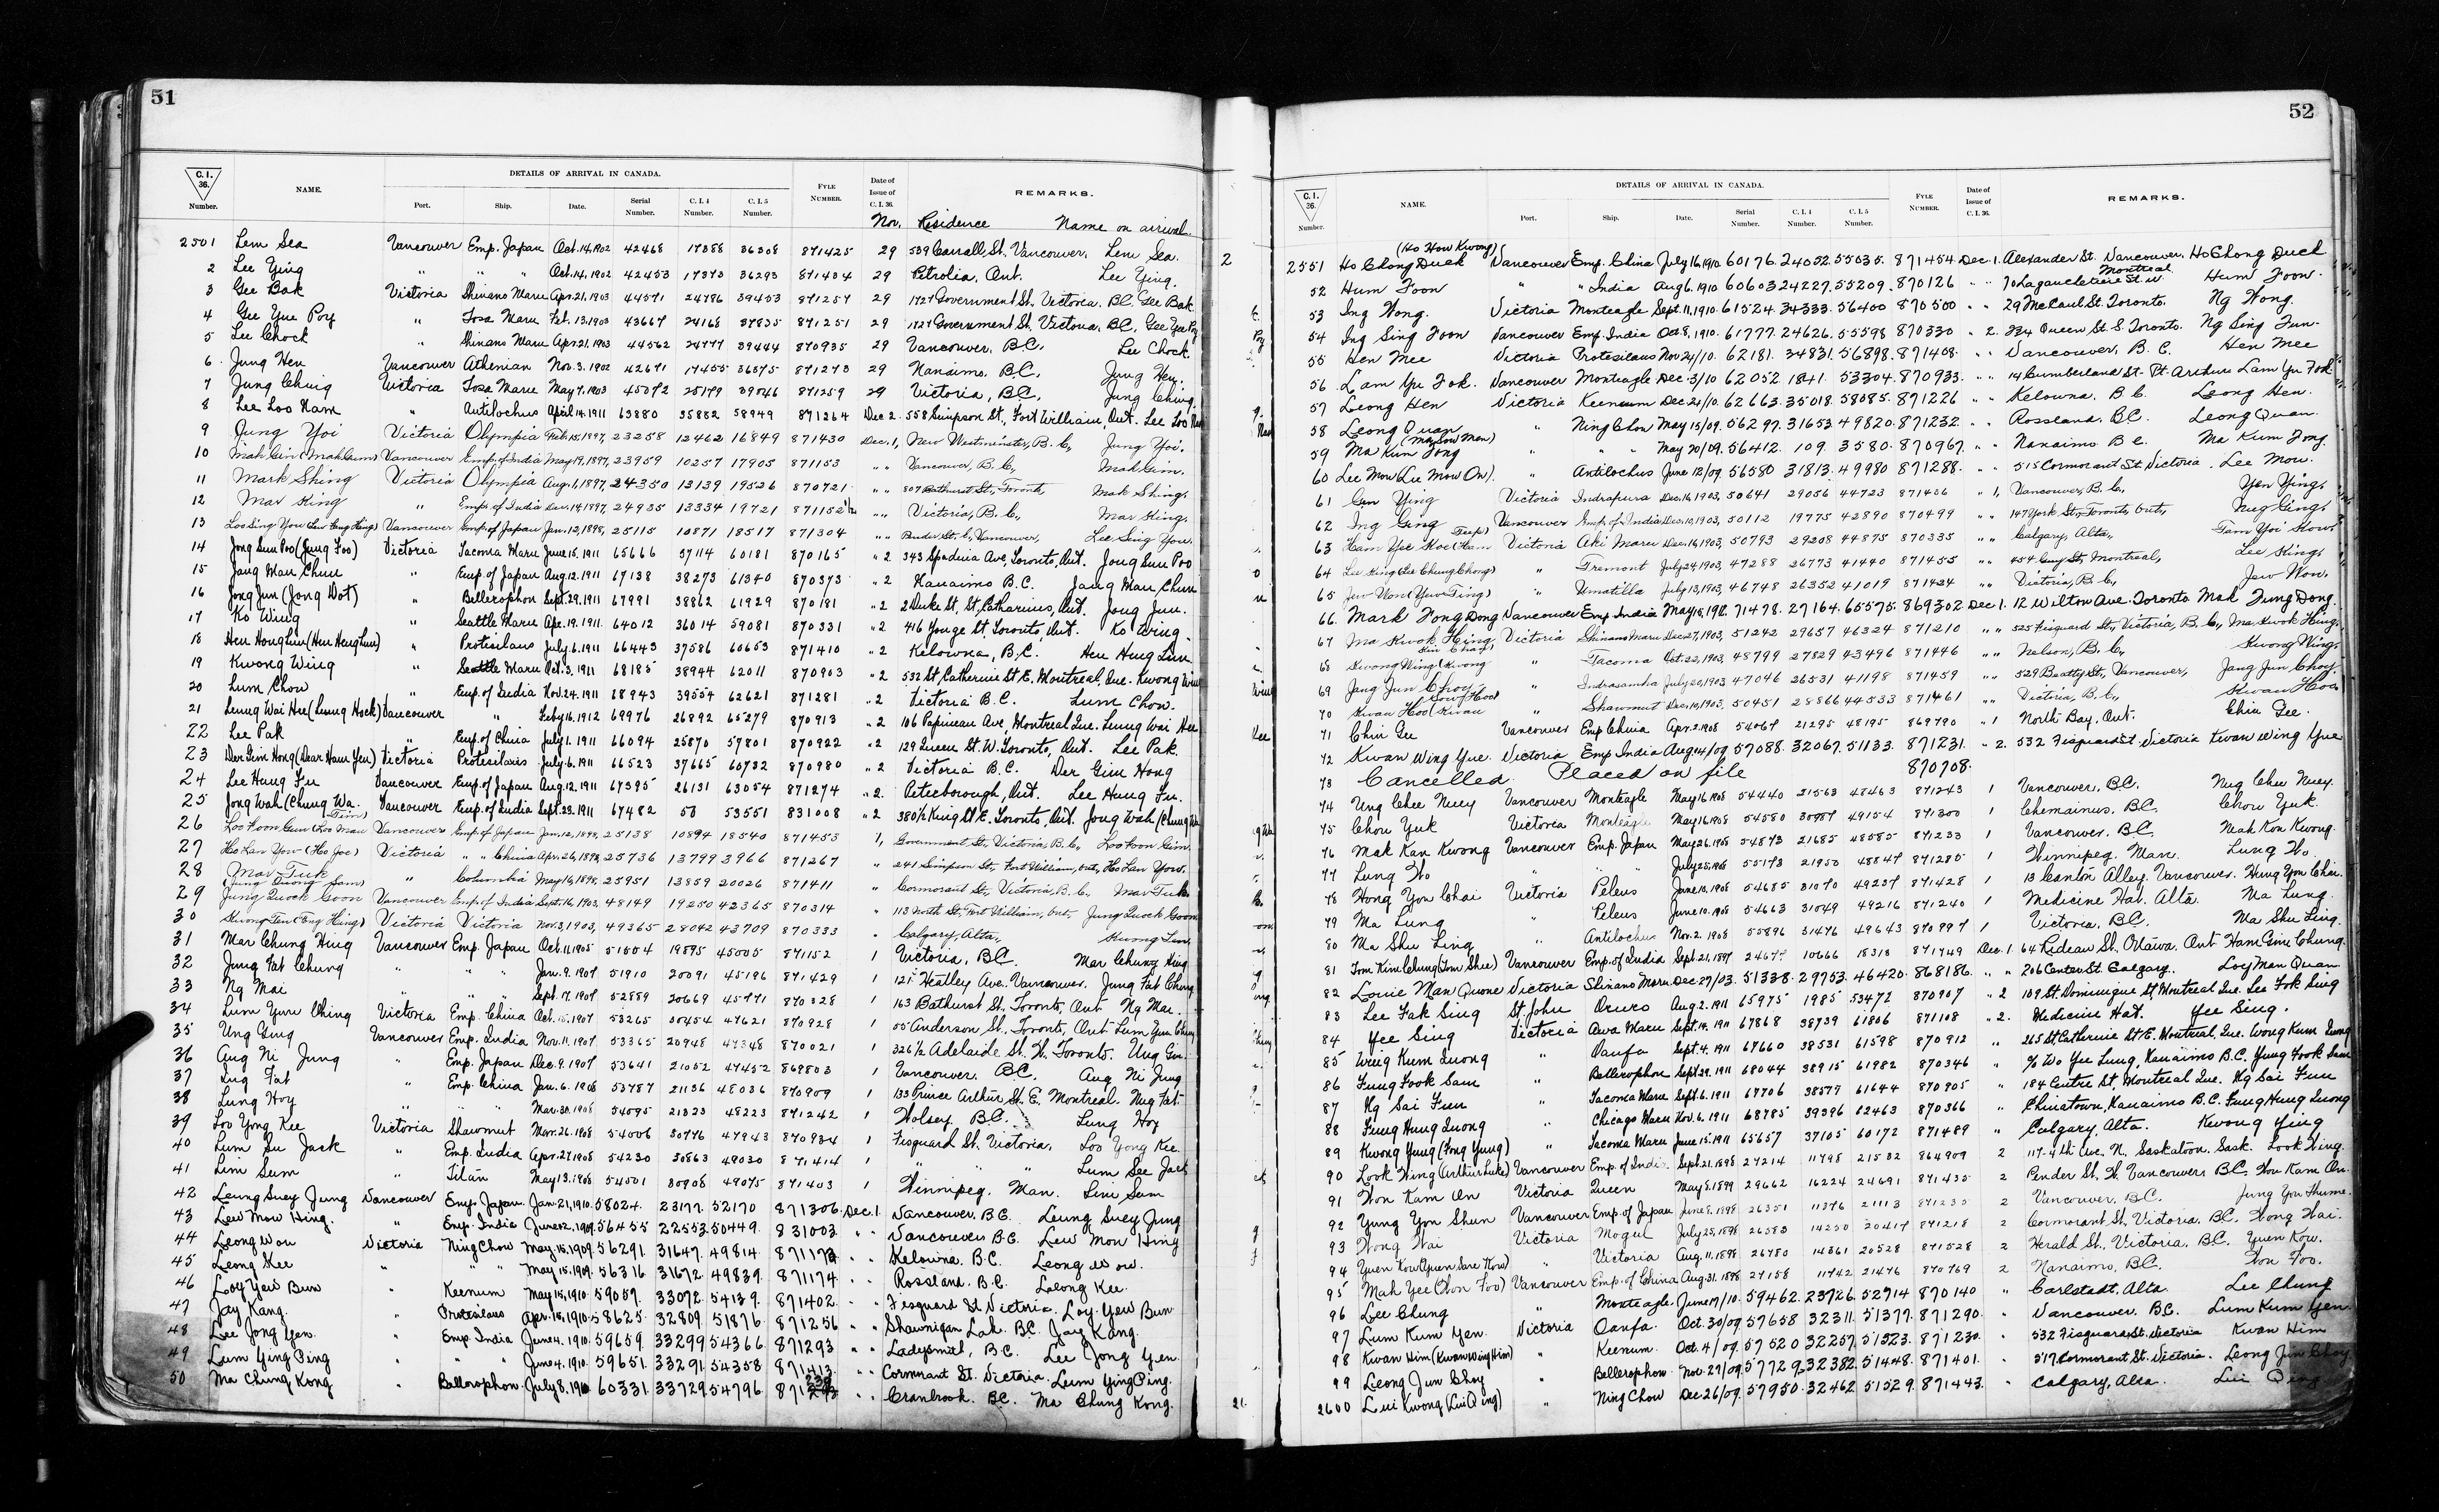 51
C.I. 36. Number.
NAME.
DETAILS OF ARRIVAL IN CANADA.
Port. Ship. Date. Serial Number. C.I.4 Number. C.I.5 Number.
FYLE NUMBER.
Date of Issue of C.I.36.
REMARKS.
Nov. Residence Name on arrival.
2501 Lem Sea Vancouver Emp. Japan Oct.14,1902 42468 17388 36308 871425 29 539 Carrall St. Vancouver. Lem Sea.
2 Lee Ying " " " Oct.14,1902 42453 17373 36293 871434 29 Petrolia, Ont. Lee Ying.
3 Gee Bak Victoria Shinano Maru Apr.21,1903 44571 24786 39453 871257 29 1727 Government St. Victoria. B.C. Gee Bak
4 Gee Yue Poy " Tosa Maru Feb.13,1903 43667 24168 37835 871251 29 1727 Government St. Victoria, B.C. Gee Yue Poy
5 Lee Chock " Shinano Maru Apr.21,1903 44562 24777 39444 870935 29 Vancouver, B.C. Lee Chock
6 Jung Hen Vancouver Athenian Nov.3,1902 42671 17455 36575 871273 29 Nanaimo, B.C. Jung Hen.
7 Jung Ching Victoria Tosa Maru May 7,1903 45072 25179 39046 871259 29 Victoria, B.C. Jung Ching
8 Lee Loo Nam " Antilochus April 14,1911 63880 35882 58949 871264 Dec 2. 558 Simpson St, Fort William, Ont. Lee Loo Nam
9 Jung Yoi Victoria Olympia Feb.15,1897, 23258 12462 16849 871430 Dec.1, New Westminster, B.C., Jung Yoi.
10 Mah Gin (Mah Gum) Vancouver Emp. of India May 19,1897, 23959 10257 17905 871153 " " Vancouver, B.C., Mah Gim.
11 Mark Shing Victoria Olympia Aug.1,1897, 24350 13139 19526 870721 " " 807 Bathurst St., Toronto, Mak Shing.
12 Mar King " Emp. of India Dec.14,1897, 24935 13334 19721 871152½ " " Victoria, B.C., Mar King.
13 Loo Sing You Vancouver Emp. of Japan Jan.12,1898, 25115 10871 18517 871304 " " Pender St. E., Vancouver, Lee Sing You
14 Jong Sun Poo (Jung Foo) Victoria Tacoma Maru June 15.1911 65666 37114 60181 870165 " 2 343 Spadina Ave, Toronto, Ont. Jong Sun Poo
15 Jang Man Chun " Emp. of Japan Aug.12.1911 67138 38273 61340 870373 " 2 Nanaimo B.C. Jang Man Chun
16 Jong Jun (Jong Dot) " Bellerophon Sept.29.1911 67991 38862 61929 870181 " 2 2 Duke St, St, Catharines, Ont. Jong Jun.
17 Ko Wing " Seattle Maru Apr.19.1911 64012 36014 59081 870331 " 2 416 Yonge St. Toronto, Ont. Ko Wing.
18 Hen Hong Lim (Hen Heng Lum) " Protesilaus July 6.1911 66443 37586 60653 871410 " 2 Kelowna, B.C. Hen Hing Lim
19 Kwong Wing " Seattle Maru Oct.3.1911 68185 38944 62011 870903 " 2 532 St, Catherine St E. Montreal, Que. Kwong Wing
20 Lum Chow " Emp. of India Nov.24.1911 68943 39554 62621 871281 " 2 Victoria B.C. Lum Chow.
21 Leung Wai Hee (Leung Hock) Vancouver " Feb 16.1912 69976 26892 65279 870913 " 2 106 Papineau Ave, Montreal Que. Leung Wai Hee
22 Lee Pak " Emp. of China July 1.1911 66094 25870 57801 870922 " 2 129 Queen St. W. Toronto, Ont. Lee Pak.
23 Der Gim Hong (Dear Ham Yen) Victoria Protesilaus July 6.1911 66523 37665 60732 870980 " 2 Victoria B.C. Der Gim Hong
24 Lee Hung Fu Vancouver Emp. of Japan Aug.12.1911 67395 26131 63054 871274 " 2. Peterborough, Ont. Lee Hung Fu.
25 Jong Wah (Chung Wa. Vancouver Emp. of India Sept.23.1911 67482 58 53551 831008 " 2 380½ King St E. Toronto, Ont. Jong Wah (Chung Wa
26 Loo Koon Gim (Loo Man Tim) Vancouver Emp. of Japan Jan.12,1898, 25138 10894 18540 871453 1, Government St., Victoria, B.C., Loo Koon Gim.
27 Ho Lan Yow (Ho Joe) Victoria " " China Apr.26,1898, 25736 13799 3966 871267 " 241 Simpson St., Fort William, Ont., Ho Lan Yow.
28 Mar Tuck " Columbia May 16,1898, 25951 13859 20026 871411 " Cormorant St., Victoria, B.C., Mar Tuck
29 Jung Quock Goon (Jung Quong Sam) Vancouver Emp. of India Sept.16,1903, 48149 19250 42365 870314 " 113 North St., Fort William, Ont., Jung Quock Goon
30 Kwong Ten (Eng Hing) Victoria Victoria Nov.3,1903, 49365 28042 43709 870333 " Calgary, Alta., Kwong Len.
31 Mar Chung Hing Vancouver Emp. Japan Oct.11,1905 51504 19895 45005 871152 1 Victoria, B.C. Mar Chung Hing
32 Jung Fat Chung " " " Jan.9.1907 51910 20091 45196 871429 1 125 Heatley Ave. Vancouver. Jung Fat Chung
33 Ng Mai " " " Sept.17,1907 52889 20669 45771 870328 1 163 Bathurst St., Toronto, Ont Ng Mai.
34 Lum Yun Ching Victoria Emp. China Oct.15,1907 53265 30454 47621 870928 1 55 Anderson St. Toronto, Ont Lum Yun Ching
35 Ung Ging Vancouver Emp. India Nov.11,1907 53365 20948 47348 870021 1 326½ Adelaide St. W. Toronto. Ung Gin.
36 Aug Ni Jung " Emp. Japan Dec.9.1907 53641 21052 47452 869803 1 Vancouver. B.C. Aug Ni Jung
37 Ing Fat " Emp. China Jan.6.1908 53787 21136 48036 870909 1 133 Prince Arthur St. E. Montreal. Nug Fat
38 Lung Hoy " " " Mar.30.1908 54095 21323 48223 871242 1 Wolsey B.C. Lung Hoy
39 Loo Yong Kee Victoria Shawmut Mar.26.1908 54006 30776 47943 870934 1 Fisguard St. Victoria, Loo Yong Kee.
40 Lum Su Jack " Emp. India Apr.27.1908 54230 30863 49030 871414 1 " " " Lum See Jack
41 Lim Sum " Titan May 13.1908 54501 30908 49075 871403 1 Winnipeg. Man. Lim Sum
42 Leung Suey Jung Vancouver Emp. Japan. Jan.21,1910. 58024. 23177. 52170 871306. Dec.1. Vancouver. B.C. Leung Suey Jung
43 Lew Mow Hing. " Emp. India June 2.1909. 56455 22553. 50449. 831003. " " Vancouver B.C. Lew Mon Hing
44 Leong Won Victoria Ning Chow May.15.1909. 56291. 31647. 49814. 871173. " " Kelowna. B.C. Leong Won.
45 Leong Kee " " " May.15.1909. 56316 31672. 49839. 871174. " " Rossland. B.C. Leong Kee.
46 Looy Yew Bun " Keenum May 15,1910. 59059. 33072. 54139. 871402. " " Fisguard St Victoria. Loy Yew Bun
47 Jay Kang. " Protesilaus Apr.15,1910. 58625. 32809. 51876 871256 " " Shawnigan Lake. B.C. Jay Kang.
48 Lee Jong Yen. " Emp. India June 4.1910. 59659. 33299 54366. 871293 " " Ladysmith, B.C. Lee Jong Yen.
49 Lum Ying Ping " " " June 4.1910. 59651. 33291. 54358 871413. " " Cormorant St. Victoria. Lum Ying Ping.
50 Ma Chung Kong " Bellorophon. July 8.1910 60331. 33729. 54796. " " Cranbrook. B.C. Ma Chung Kong.
52
C.I. 36. Number.
NAME.
DETAILS OF ARRIVAL IN CANADA.
Port. Ship. Date. Serial Number. C.I.4 Number. C.I.5 Number.
FYLE NUMBER.
Date of Issue of C.I.36.
REMARKS.
(Ho How Kwong)
2551 Ho Chong Duck Vancouver Emp. China July 16,1910. 60176. 24052. 55035. 871454 Dec.1. Alexander St. Vancouver. Ho Chong Duck
52 Hum Foon " " India Aug 6.1910 60603 24227. 55209. 870126 " " 70 Lagauchetiere St. W. Montreal Hum Foon.
53 Ing Wong. Victoria Monteagle Sept.11,1910. 61524. 34333. 56400 870500 " " 29 McCaul St. Toronto. Ng Wong.
54 Ing Sing Foon Vancouver Emp. India Oct.8,1910. 61777. 24626. 55598 870330 " 2. 334 Queen St. S. Toronto. Ng Sing Fun.
55 Hen Mee Victoria Protesilaus Nov 24/10. 62181. 34831. 56898. 871408. " " Vancouver, B.C. Hen Mee
56 Lam Yu Fok. Vancouver Monteagle Dec.3/10 62052. 1841. 53304. 870933. " " 14 Cumberland St. Pt. Arthur Lam Yu Fok
57 Leong Hen Victoria Keenum Dec.24/10. 62663. 35018. 58085. 871226 " " Kelowna, B.C. Leong Hen.
58 Leong Quan " Ning Chow May 15/09. 56297. 31653. 49820. 871232. " " Rossland, B.C. Leong Quan.
59 Ma Kun Fong (Ma Sow Man) " " " May 20/09. 56412. 109. 3580. 870967 " " Nanaimo B.C. Ma Kum Fong
60 Lee Mow (Lee Mow On). " Antilochus June 12/09 56580 31813. 49980 871288. " " 515 Cormorant St Victoria. Lee Mow.
61 Gen Ying Victoria Indrapura Dec.16,1903, 50641 29056 44723 871436 " 1, Vancouver, B.C., Yen Ying.
62 Ing Ging Vancouver Emp. of India Dec.10,1903, 50112 19775 42890 870499 " " 147 York St., Toronto, Ont., Nug Ging.
63 Ham Yee Koe (Ham Teep) Victoria Aki Maru Dec.16,1903, 50793 29208 44875 870335 " " Calgary, Alta., Tam Yoi Kow.
64 Lee King (Lee Chung Chong) " Tremont July 24,1903, 47288 26773 41440 871455 " " 454 Guy St., Montreal, Lee King.
65 Jew Won (Yow Ting) " Umatilla July 13,1903, 46748 26352 41019 871424 " " Victoria, B.C., Jew Won.
66. Mark Fong Dong Vancouver Emp. India May 15,1912. 71478. 27164. 65575. 869302 Dec 1. 12 Wilton Ave. Toronto. Mak Fung Dong.
67 Ma Kwok Hing Victoria Shinano Maru Dec.27,1903, 51242 29657 46324 871210 " " 525 Fisguard St., Victoria, B.C., Ma Kwok Hing.
68 Kwong Wing (Kwong Kin Chay) " Tacoma Oct.22,1903, 48799 27829 43496 871446 " " Nelson, B.C., Kwong Wing.
69 Jang Jun Choy " Indrasamha July 20,1903 47046 26531 41198 871459 " " 529 Beatty St., Vancouver, Jang Jun Choy.
70 Kwan Hoo (Kwan Sow Hoo) " Shawmut Dec.10,1903, 50451 28866 44533 871461 " " Victoria, B.C., Kwan Hoo
71 Chin Gee Vancouver Emp China Apr.2.1908 54067 21295 48195 869790 " 1 North Bay, Ont. Chin Gee.
72 Kwan Wing Yue. Victoria Emp India Aug 14/09 57088. 32067. 51133. 871231. " 2. 532 Fisguard St. Victoria Kwan Wing Yue
73 Cancelled. Placed on file 870708.
74 Ung Chee Nuey Vancouver Monteagle May 16.1908 54440 21563 48463 871243 1 Vancouver, B.C. Nug Chee Nuey.
75 Chou Yuk Victoria Monteagle May 16.1908 54580 30987 49154 871300 1 Chemainus, B.C. Chou Yuk.
76 Mak Kan Kwong Vancouver Emp. Japan May 26.1908 54873 21685 48585 871233 1 Vancouver, B.C. Mak Kon Kwong.
77 Lung Wo " " " July 25.1908 55173 21950 48847 871285 1 Winnipeg. Man. Lung Wo
78 Hong You Chai Victoria Peleus June 10.1908 54685 31070 49237 871428 1 13 Canton Alley. Vancouver. Hung You Chai.
79 Ma Lung " Peleus June 10.1908 54663 31049 49216 871240 1 Medicine Hat. Alta. Ma Lung
80 Ma Shu Ling " Antilochus Nov.2.1908 55896 31476 49643 870997 1 Victoria, B.C. Ma Shu Ling.
81 Tom Kim Chung (Tom Shee) Vancouver Emp. of India Sept.21.1897 24677 10666 18313 871749 Dec.1. 64 Rideau St. Ottawa. Ont Ham Gim Chung.
82 Louie Man Quone Victoria Shinano Maru Dec 27/03. 51338. 29753. 46420. 868186. " " 206 Center St. Calgary. Loy Man Quan
83 Lee Fak Sing St. John Oruro Aug.2.1911 65975 1985 53472 870907 " 2 109 St. Dominique St, Montreal Que. Lee Fok Sing
84 Yee Sing Victoria Awa Maru Sept.19.1911 67868 38739 61806 871108 " 2. Medicine Hat. Yee Sing.
85 Wing Kum Luong " Oanfa Sept.4.1911 67660 38531 61598 870912 " 265 St. Catherine St E. Montreal, Que. Wong Kum Luong
86 Fung Fook Sam " Bellerophon Sept.29.1911 68044 38915 61982 870346 " c/o Wo Yee Lung, Nanaimo B.C. Fung Fook Sam
87 Ng Sai Fun " Tacoma Maru Sept.6.1911 67706 38577 61644 870905 " 184 Centre St, Montreal Que. Ng Sai Fun
88 Fung Hung Luong " Chicago Maru Nov.6.1911 68785 39396 62463 870366 " Chinatown, Nanaimo B.C. Fung Hung Luong
89 Kwong Yung (Fong Yung) " Tacoma Maru June 15.1911 65657 37105 60172 871489 " Calgary, Alta. Kwong Ying
90 Look Wing (Arthur Luke) Vancouver Emp. of India Sept.21.1898 27214 11798 21532 864909 2 117-4th Ave. N. Saskatoon, Sask. Look Wing.
91 Won Kam On Victoria Queen May 8.1899 29662 16224 24691 871435 2 Pender St. W. Vancouver, B.C. Wou Kam On.
92 Yung Yon Shun Vancouver Emp. of Japan June 8.1898 26351 11376 21113 871235 2 Vancouver, B.C. Jung You Thume.
93 Wong Wai Victoria Mogul July 25,1898 26583 14250 20417 871218 2 Cormorant St, Victoria, B.C. Wong Wai.
94 Yuen Kow (Yuen Sare Kow) " Victoria Aug.11.1898 26780 14361 20528 871528 2 Herald St., Victoria, B.C. Yuen Kow.
95 Mah Yee (Won Foo) Vancouver Emp. of China Aug.31.1898 27158 11742 21476 870769 2 Nanaimo, B.C. Won Foo.
96 Lee Chung " Monteagle. June 17/10. 59462. 23726. 52714 870140 " Carlstadt, Alta. Lee Chung
97 Lum Kum Yen. Victoria Oanfa. Oct.30/09. 57658 32311. 51377. 871290. " Vancouver. B.C. Lum Kum Yen.
98 Kwan Him (Kwan Wing Him) " Keenum. Oct.4/09. 57520 32257. 51323. 871230. " 532 Fisguard St. Victoria Kwan Him
99 Leong Jun Choy " Bellerophon. Nov.29/09. 57729. 32382. 51448. 871401. " 517 Cormorant St. Victoria. Leong Jun Choy.
2600 Lui Kwong (Lui Qing) " Ning Chow Dec 26/09. 57950. 32462 51529. 871443. " Calgary, Alta. Lui Qing